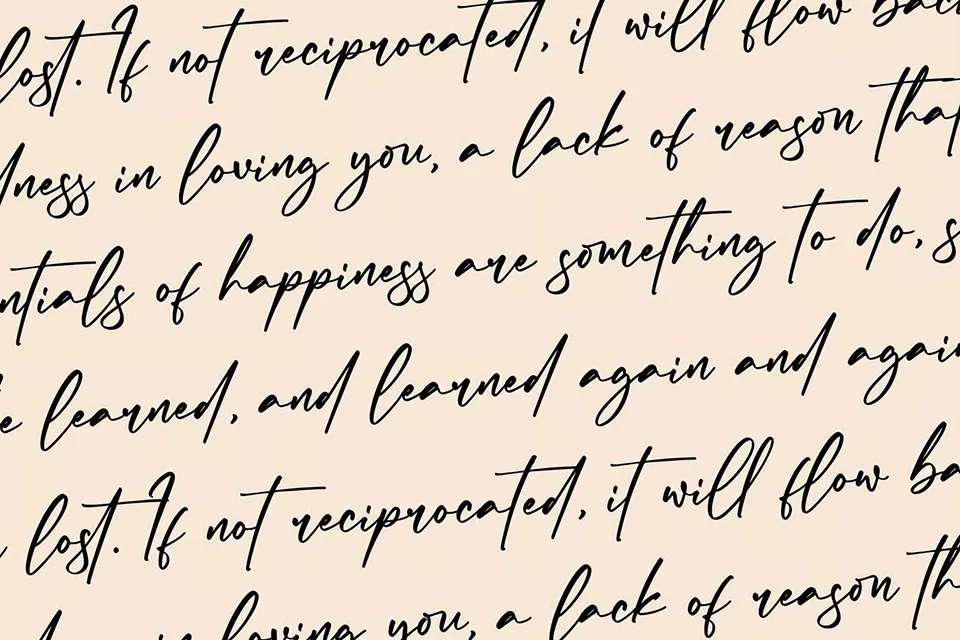 lost. If not reciprocated, it will flow back
in loving you, a lack of reason that
of happiness are something to do, s
learned, and learned again and again
lost. If not reciprocated, it will flow ba
in loving you, a lack of reason th